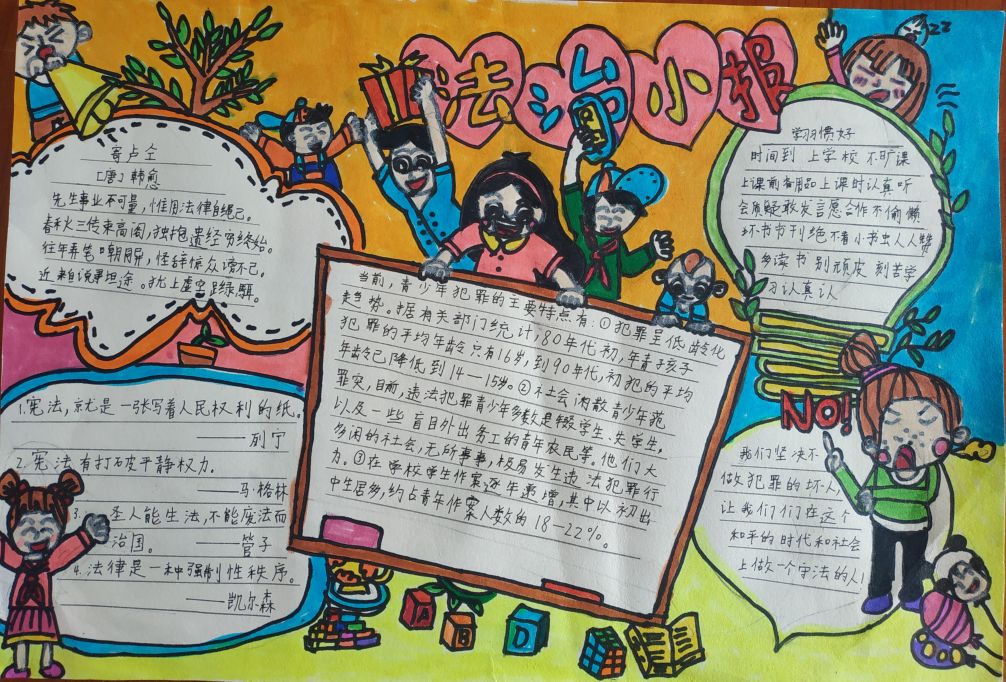 法治小报
寄卢仝
[唐]韩愈
先生事业不可量，惟用法律自绳己。
春秋三传束高阁，独抱遗经穷终始。
往年弄笔嘲同异，怪辞惊众谤不已。
近来自说寻坦途。犹上虚空跨绿駬。
1.宪法，就是一张写着人民权利的纸。
——列宁
2.宪法有打破平静权力.
——马·格林
3.圣人能生法，不能废法而
治国。——管子
4.法律是一种强制性秩序。
——凯尔森
当前，青少年犯罪的主要特点有：①犯罪呈低龄化
趋势。据有关部门统计，80年代初，年青孩子
犯罪的平均年龄只有16岁，到90年代，初犯的平均
年龄已降低到14—15岁。②社会闲散青少年犯
罪突，目前，违法犯罪青少年多数是辍学生、失学生，
以及一些盲目外出务工的青年农民等。他们大
多闲的社会，无所事事，极易发生违法犯罪行
力。③在学校学生作案逐年素增，其中以初出
中生居多，约占青年作案人数的18—22%。
学习惯好
时间到 上学校 不旷课
上课前备用品上课时认真听
会质疑敢发言愿合作不偷懒
坏书书刊绝不看小书虫人人赞
多读书 别顽皮 刻苦学
习认真认
NO!
我们坚决不
做犯罪的坏人，
让我们们在这个
和平的时代和社会
上做一个守法的人！
zz
A
B
D